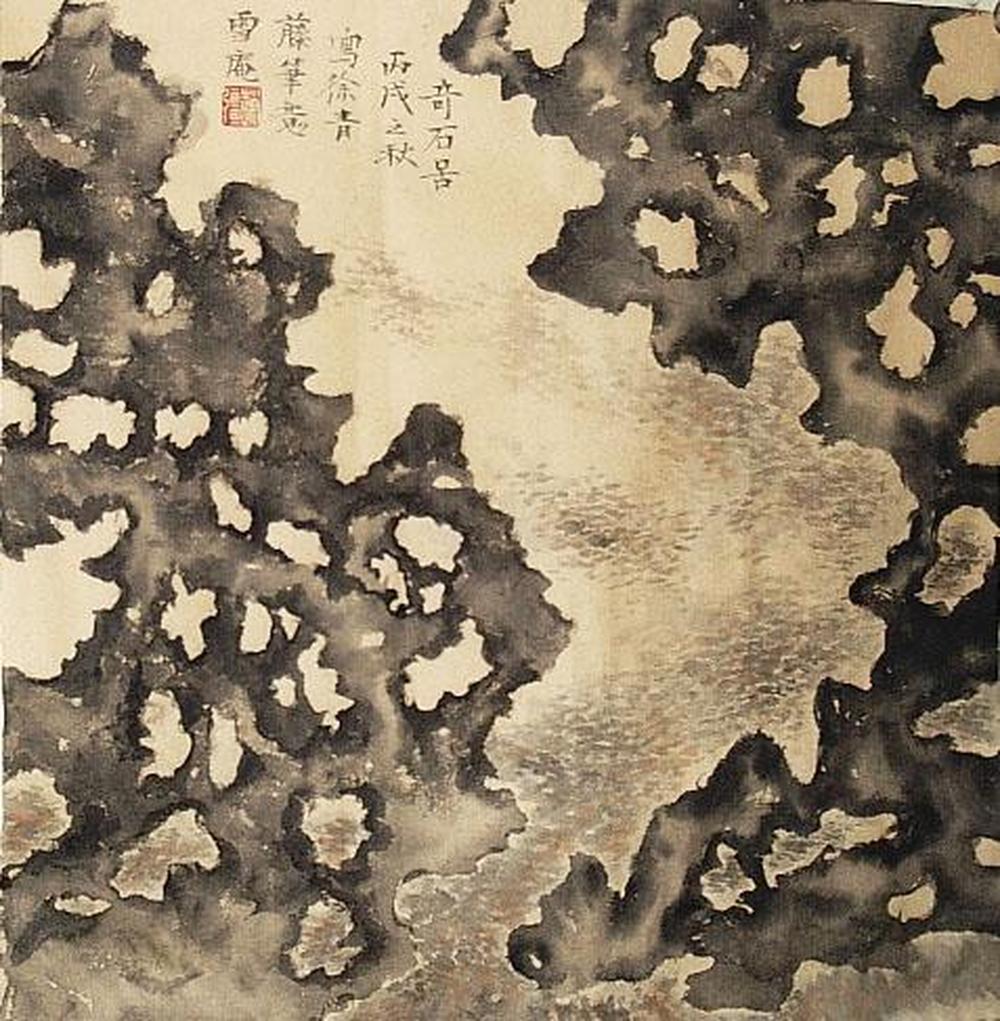 奇石
丙戌之秋
寫徐青
藤筆意
雪庵